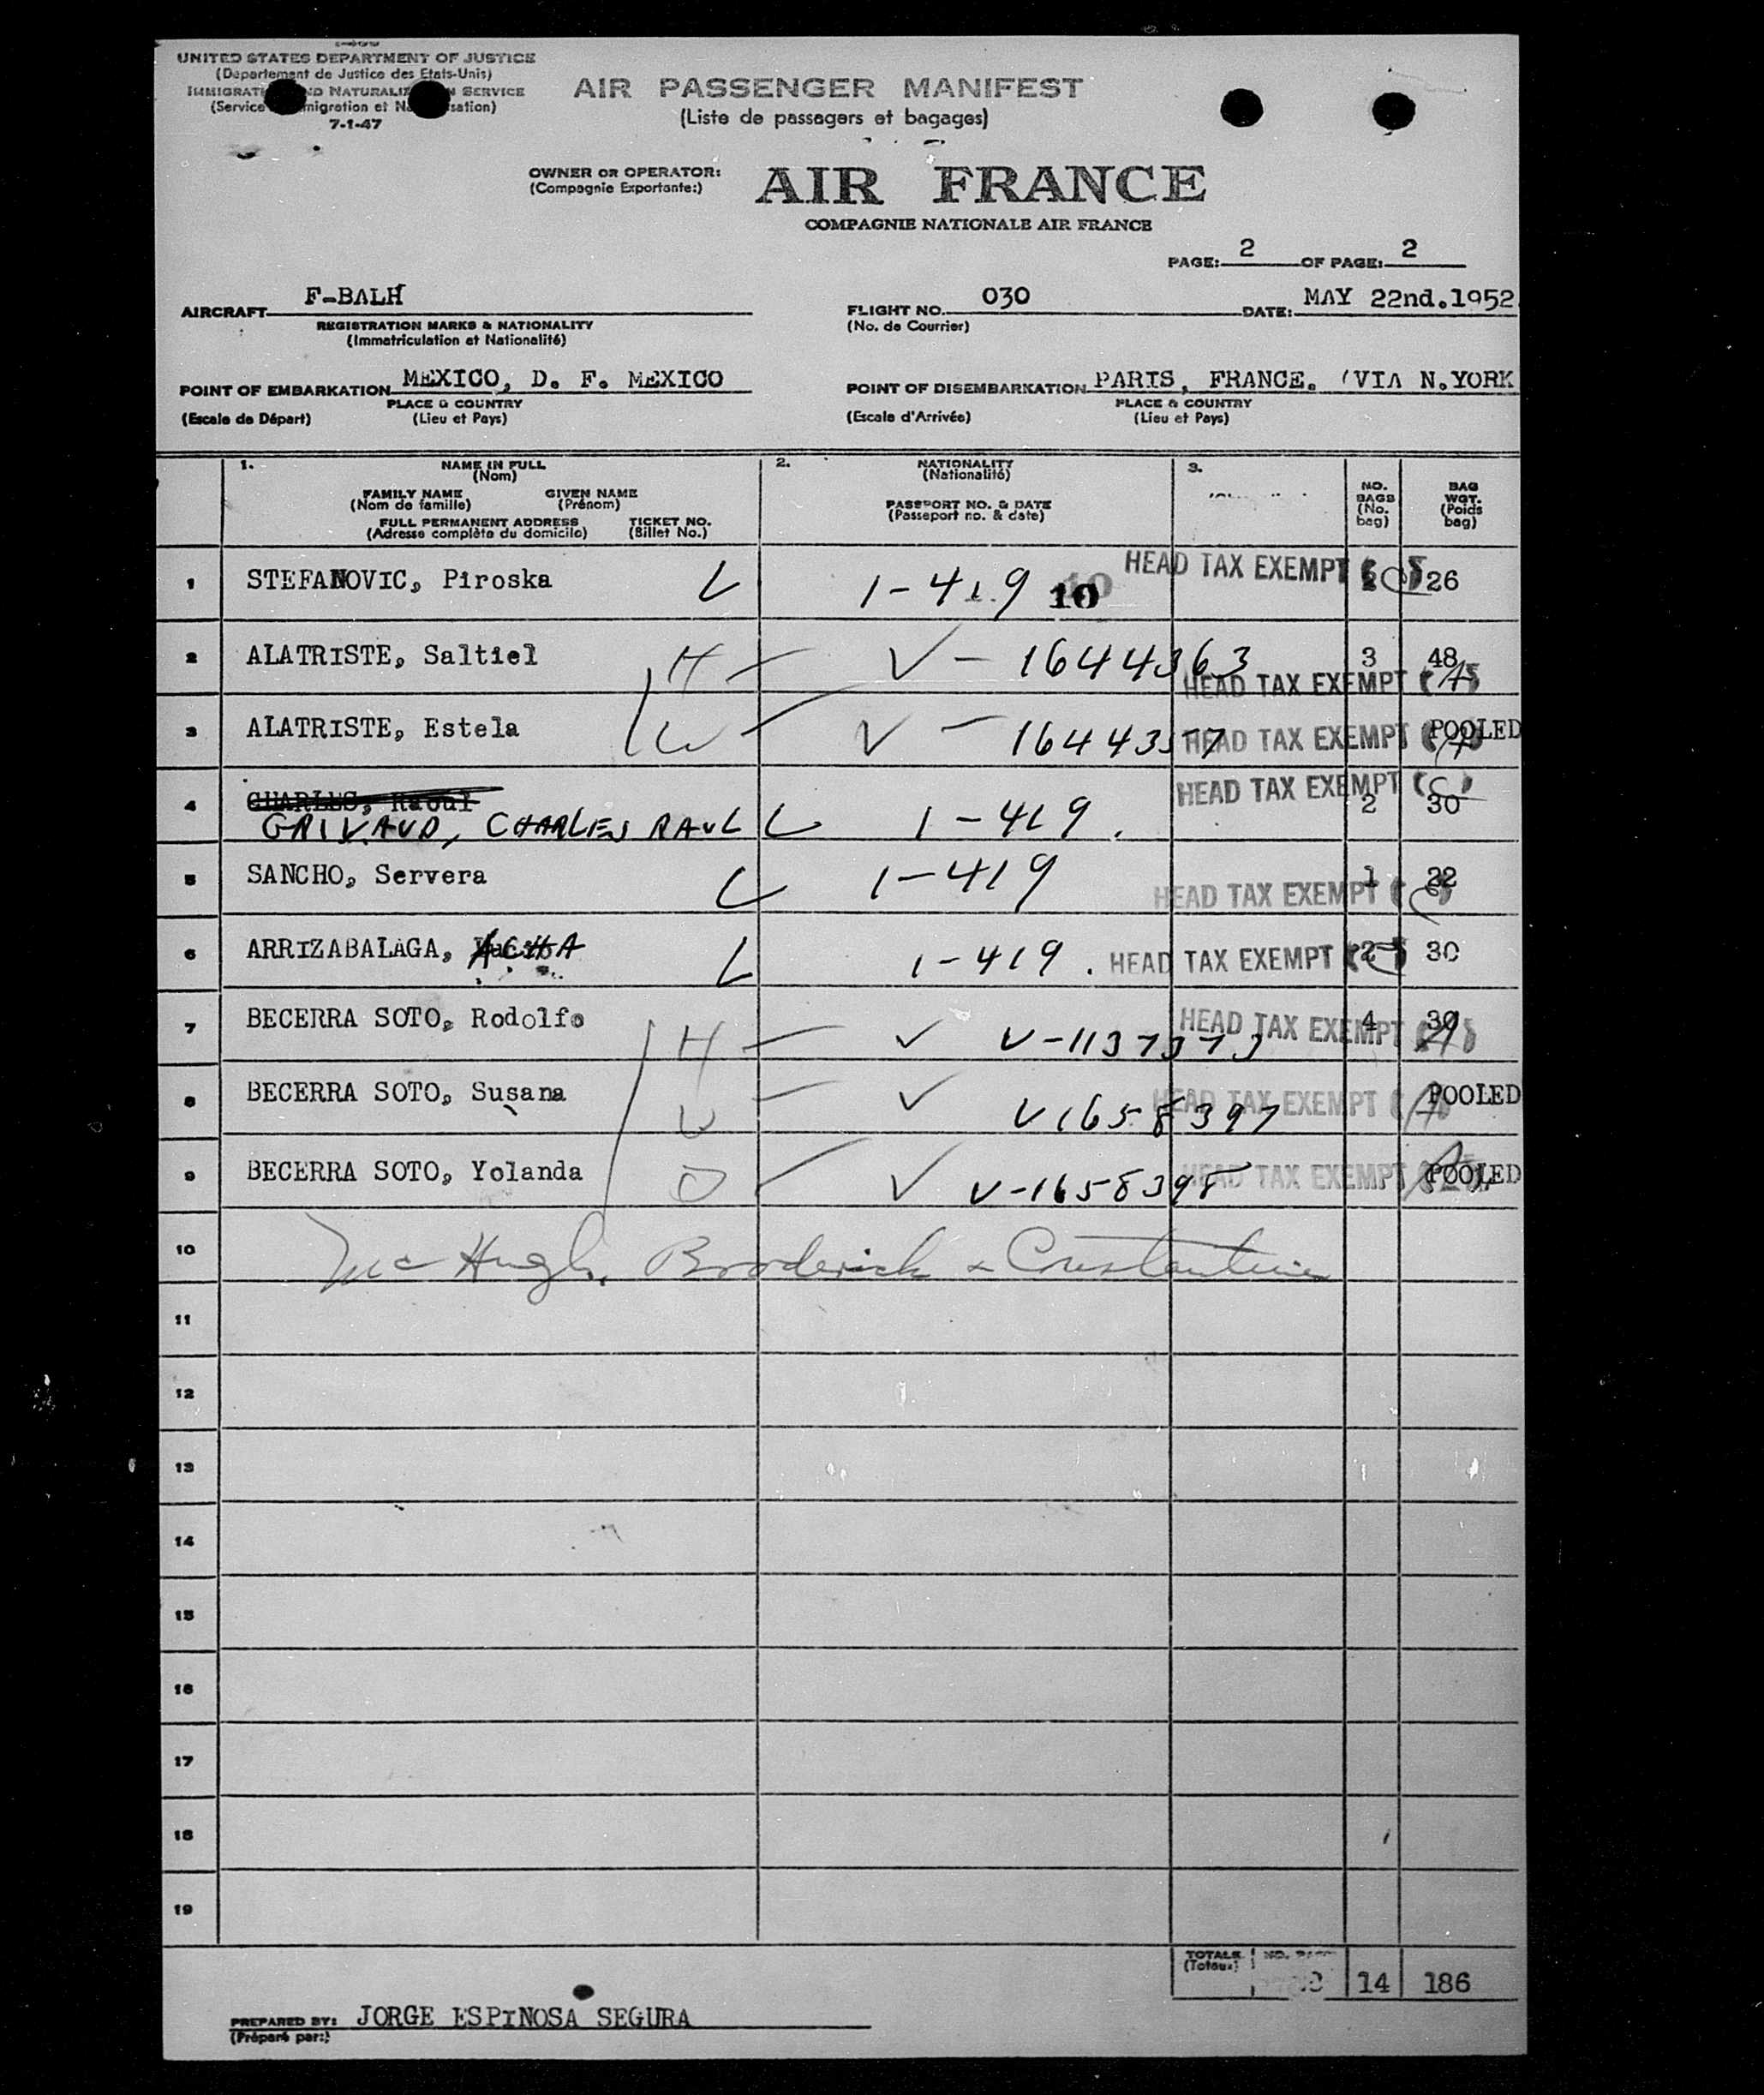 UNITED STATES DEPARTMENT OF JUSTICE
(Departement de Justice des Etats-Unis)
7-1-47
AIR PASSENGER MANIFEST
(Liste de passagers et bagages)
OWNER OR OPERATOR:
(Compagnie Exportante:)
AIR FRANCE
COMPAGNIE NATIONALE AIR FRANCE
PAGE: 2 OF PAGE: 2
AIRCRAFT F-BALH FLIGHT NO. 030 DATE: MAY 22nd.1952
REGISTRATION MARKS & NATIONALITY (No. de Courrier)
(Immatriculation et Nationalité)
POINT OF EMBARKATION MEXICO, D. F. MEXICO POINT OF DISEMBARKATION PARIS, FRANCE. (VIA N.YORK
PLACE & COUNTRY PLACE & COUNTRY
(Escale de Départ) (Lieu et Pays) (Escale d'Arrivée) (Lieu et Pays)
1. NAME IN FULL 2. NATIONALITY 3.
(Nom) (Nationalité)
FAMILY NAME GIVEN NAME PASSPORT NO. & DATE NO. BAGS BAG WGT.
(Nom de famille) (Prénom) (Passeport no. & date) (No. bag) (Poids bag)
FULL PERMANENT ADDRESS TICKET NO.
(Adresse complète du domicile) (Billet No.)
1 STEFANOVIC, Piroska L 1-419 10 HEAD TAX EXEMPT 26
2 ALATRISTE, Saltiel H V-1644363 HEAD TAX EXEMPT 3 48
3 ALATRISTE, Estela W V-1644357 HEAD TAX EXEMPT POOLED
4 CHARLES, Raoul HEAD TAX EXEMPT 2 30
GRIVAUD, CHARLES RAUL L 1-419.
5 SANCHO, Servera L 1-419 HEAD TAX EXEMPT 1 22
6 ARRIZABALAGA, ACHA L 1-419. HEAD TAX EXEMPT 2 30
7 BECERRA SOTO, Rodolfo H V-1137373 HEAD TAX EXEMPT 4 30
8 BECERRA SOTO, Susana V1658397 HEAD TAX EXEMPT POOLED
9 BECERRA SOTO, Yolanda D V-1658398 HEAD TAX EXEMPT POOLED
10 McHugh, Broderick & Constantine
11
12
13
14
15
16
17
18
19
TOTALS 14 186
(Totaux)
PREPARED BY: JORGE ESPINOSA SEGURA
(Préparé par:)